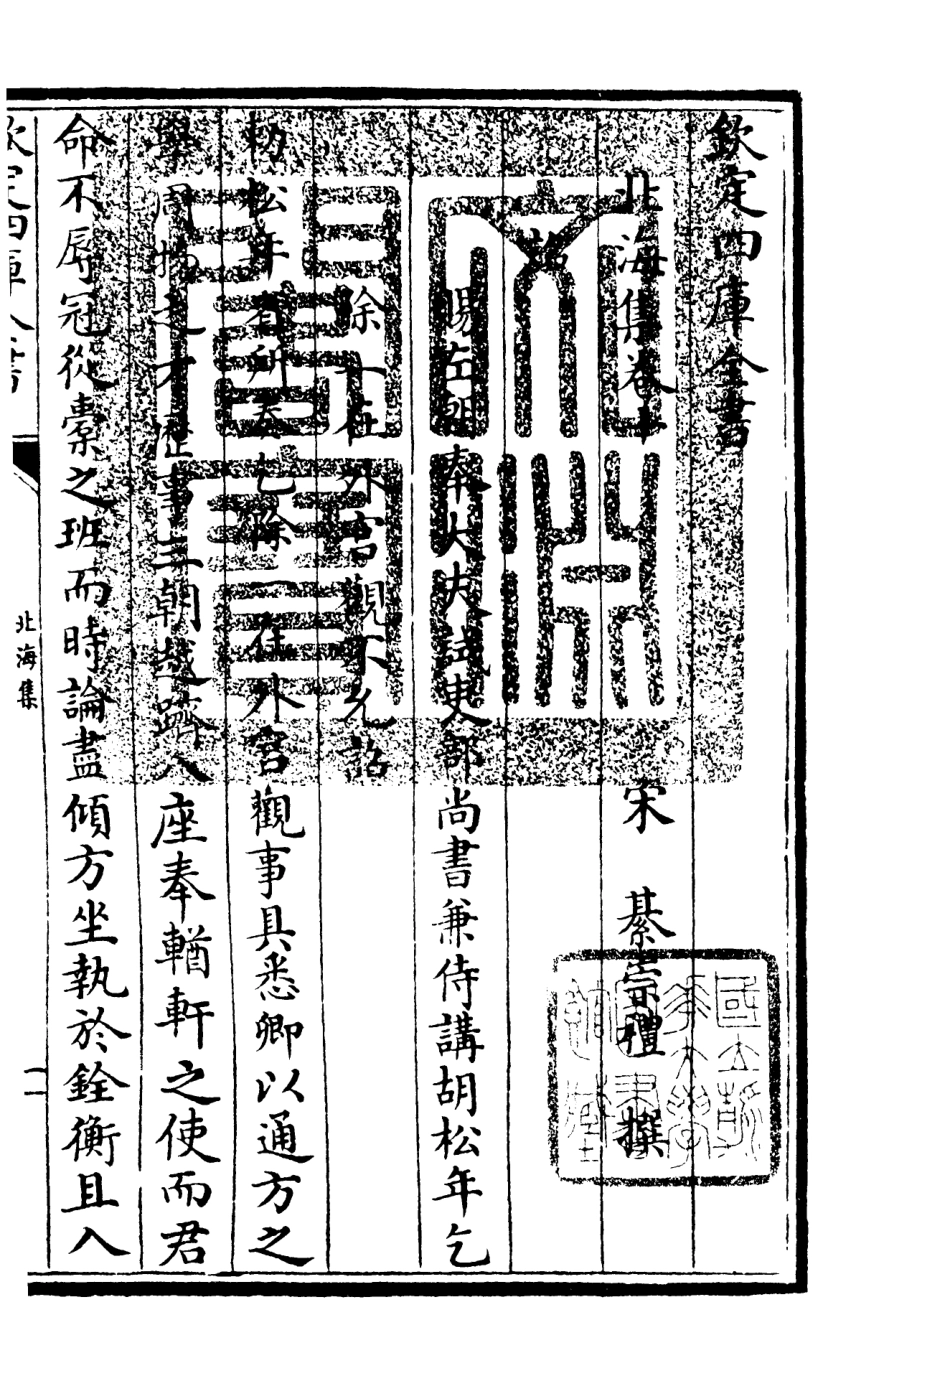 欽定四庫全書
北海集卷十
宋 綦崇禮 撰
詔
賜左朝奉大夫試吏部尚書兼侍講胡松年乞
除一在外宫觀不允詔
勅松年省所奏乞除一在外宫觀事具悉卿以通方之
學周物之才歴事三朝越躋八座奉輶軒之使而君
命不辱冠從橐之班而時論盡傾方坐執於銓衡且入
欽定四庫全書
北海集
一